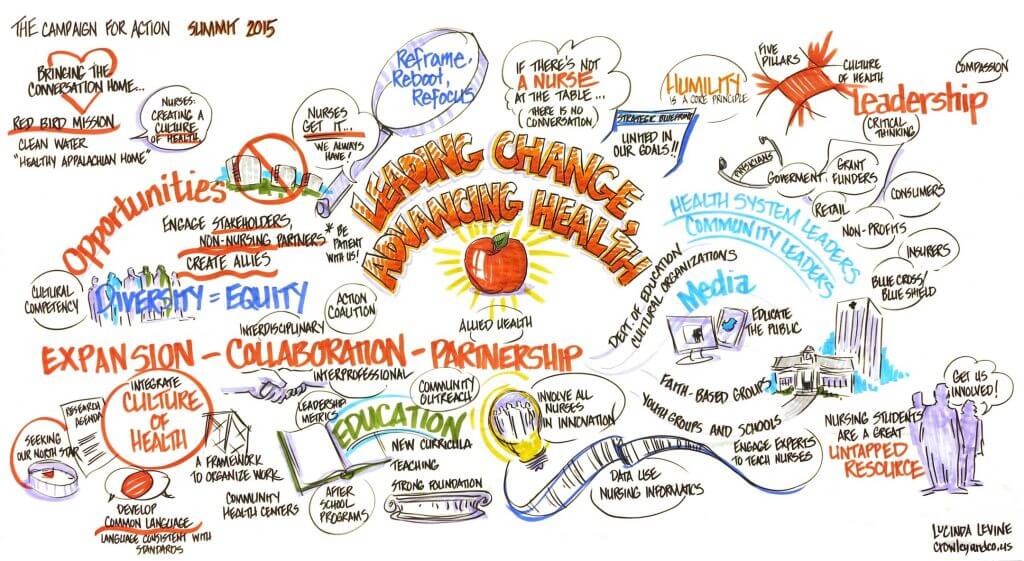 THE CAMPAIGN FOR ACTION SUMMIT 2015
BRINGING THE
CONVERSATION HOME...
RED BIRD MISSION
CLEAN WATER
"HEALTHY APPALACHIAN HOME"
NURSES:
CREATING A
CULTURE
OF HEALTH.
NURSES
GET IT...
WE ALWAYS
HAVE!
Reframe,
Reboot,
Refocus
IF THERE'S NOT
A NURSE
AT THE TABLE...
(THERE IS NO
CONVERSATION)
HUMILITY
IS A CORE PRINCIPLE
STRATEGIC BLUEPRINT
UNITED IN
OUR GOALS!!
FIVE
PILLARS
CULTURE
OF HEALTH
COMPASSION
leadership
CRITICAL
THINKING
PHYSICIANS
GOVERMENT
GRANT
FUNDERS
CONSUMERS
RETAIL
NON-PROFITS
INSURERS
BLUE CROSS/
BLUE SHIELD
HEALTH SYSTEM LEADERS
COMMUNITY LEADERS
LEADING CHANGE,
ADVANCING HEALTH
Opportunities
ENGAGE STAKEHOLDERS,
NON-NURSING PARTNERS
CREATE ALLIES
* BE
PATIENT
WITH US!
CULTURAL
COMPETENCY
DIVERSITY = EQUITY
ACTION
COALITION
INTERDISCIPLINARY
ALLIED HEALTH
EXPANSION - COLLABORATION - PARTNERSHIP
INTERPROFESSIONAL
DEPT. OF EDUCATION
CULTURAL ORGANIZATIONS
Media
EDUCATE
THE PUBLIC
FAITH-BASED GROUPS
YOUTH GROUPS AND SCHOOLS
ENGAGE EXPERTS
TO TEACH NURSES
GET US
INVOLVED!
NURSING STUDENTS
ARE A GREAT
UNTAPPED
RESOURCE
SEEKING
OUR NORTH STAR
RESEARCH
AGENDA
INTEGRATE
CULTURE
OF
HEALTH
DEVELOP
COMMON LANGUAGE
LANGUAGE CONSISTENT WITH
STANDARDS
A FRAMEWORK
TO ORGANIZE WORK
COMMUNITY
HEALTH CENTERS
LEADERSHIP
METRICS
COMMUNITY
OUTREACH
EDUCATION
NEW CURRICULA
TEACHING
AFTER
SCHOOL
PROGRAMS
STRONG FOUNDATION
INVOLVE ALL
NURSES
IN INNOVATION
DATA USE
NURSING INFORMATICS
LUCINDA LEVINE
crowleyandco.us